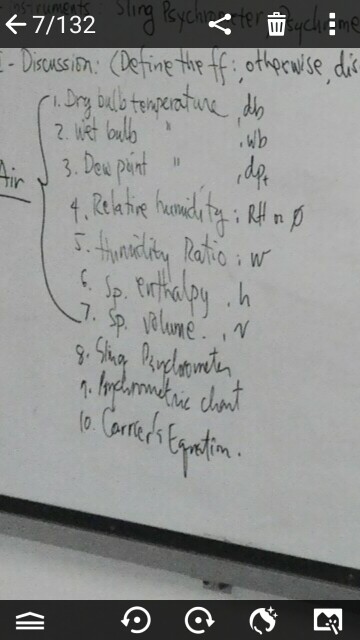 7/132
Instruments: Sling Psychrometer Psychrome
I - Discussion: (Define the ff:, otherwise, dis
1. Dry bulb temperature, db
2. Wet bulb " , wb
3. Dew point " , dpt
Air
4. Relative humidity; RH or Ø
5. Humidity Ratio; w
6. Sp. enthalpy, h
7. Sp. volume., v
8. Sling Psychrometer
9. Psychrometric chart
10. Carrier's Equation.